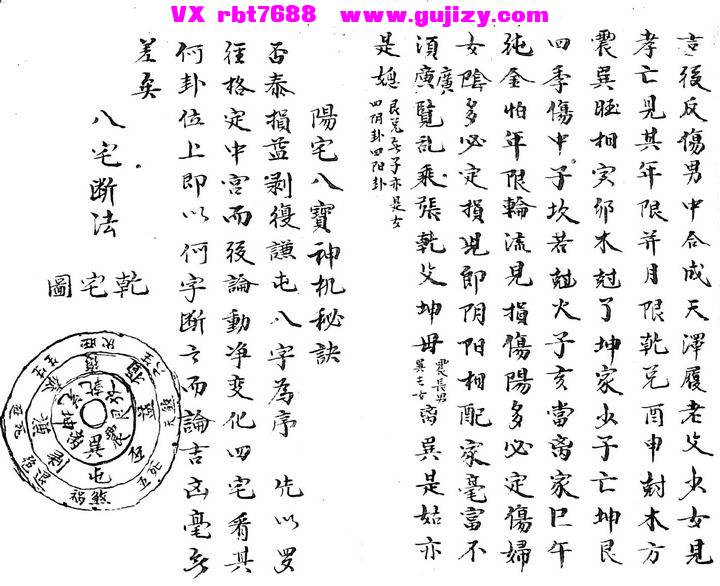 VX rbt7688 www.gujizy.com
言後反傷男中合成天澤履老父少女見
孝亡見其年限并月限乾兌酉申尅木方
震巽旺相寅卯木尅了坤家少子亡坤艮
四季傷中子坎若尅火子亥當离家巳午
純金怕年限輪流見損傷陽多必定傷婦
女陰多必定損児即阴阳相配家毫富不
須廣覽乱乘張乾父坤母震長男巽長女离巽是姑亦
是媳艮兌子亦是女四阴卦四阳卦
陽宅八寶神机秘訣
否泰損益剥復謙屯八字為序 先以罗
徑格定中宮而後論動净变化四宅看其
何卦位上即以何字断言而論吉凶毫無
差矣
八宅断法
乾宅圖